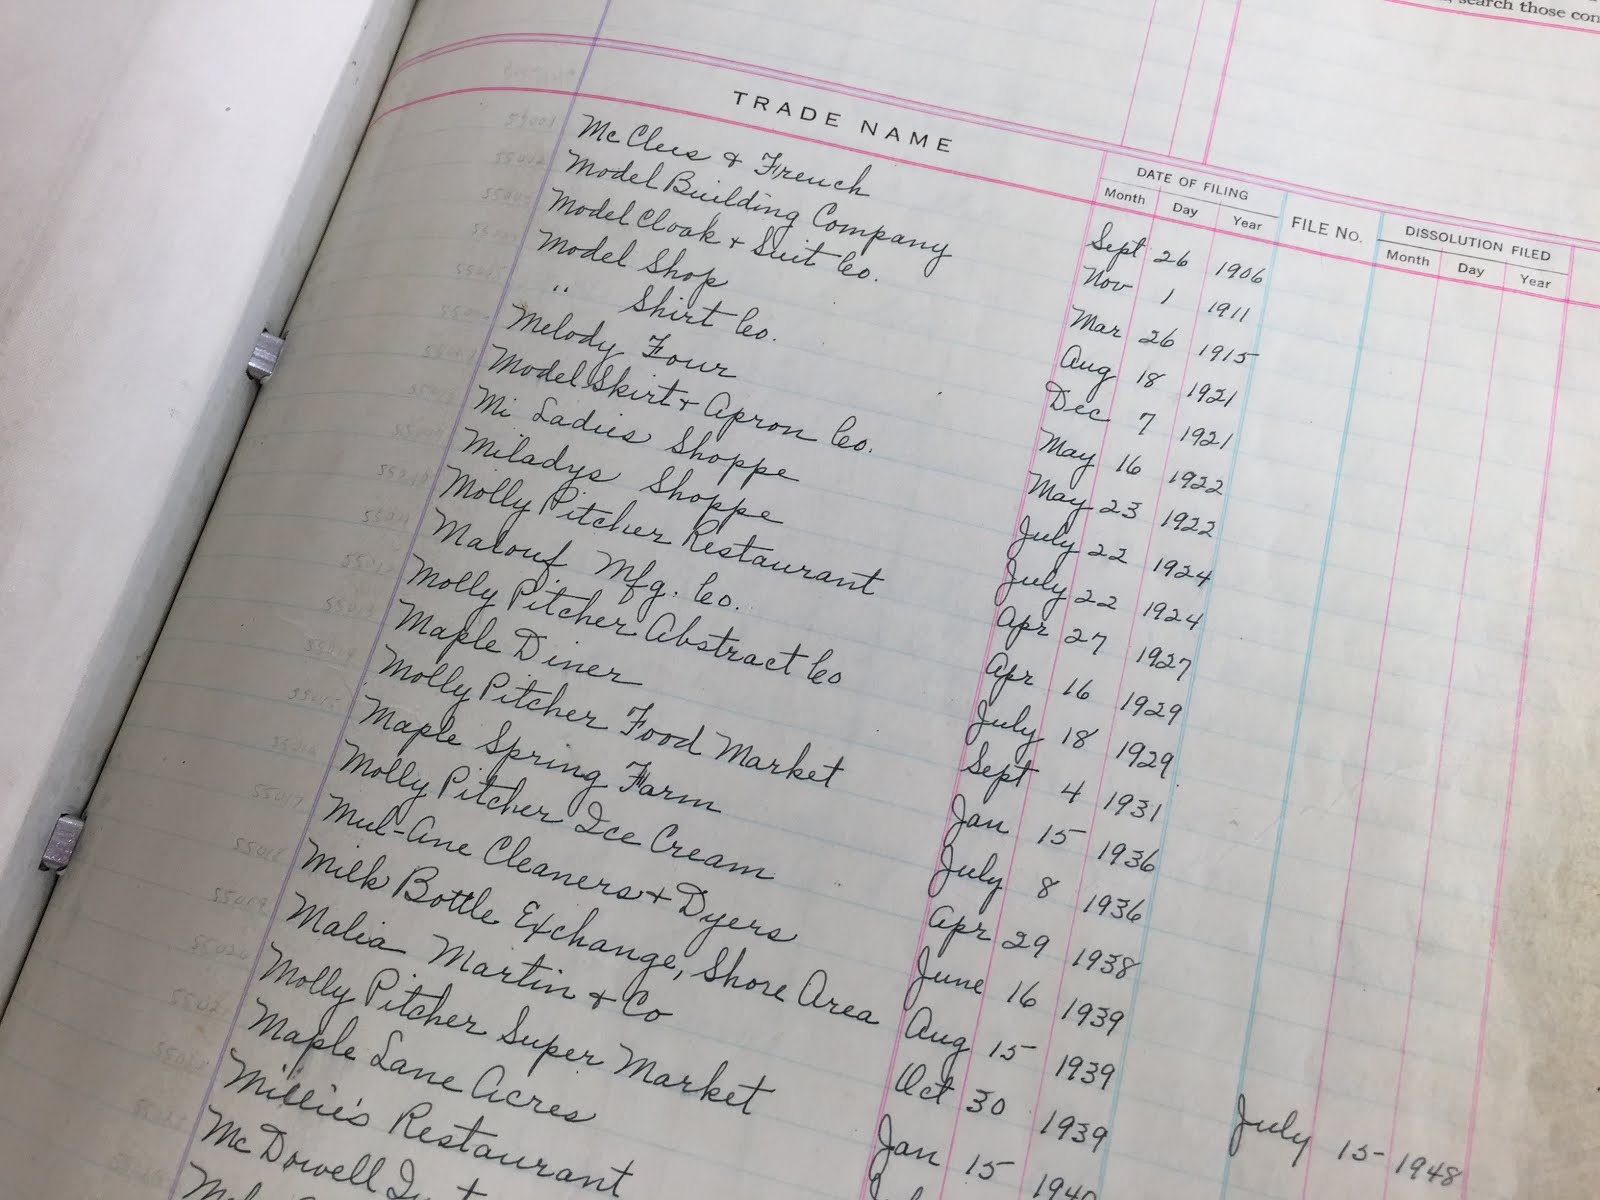 search those con
TRADE NAME
DATE OF FILING
FILE NO.
DISSOLUTION FILED
Month Day Year
Month Day Year
McClees & French Sept 26 1906
Model Building Company Nov 1 1911
Model Cloak & Suit Co. Mar 26 1915
Model Shop Aug 18 1921
" Shirt Co. Dec 7 1921
Melody Four May 16 1922
Model Skirt & Apron Co. May 23 1922
Mi Ladies Shoppe July 22 1924
Miladys Shoppe July 22 1924
Molly Pitcher Restaurant Apr 27 1927
Malouf Mfg. Co. Apr 16 1929
Molly Pitcher Abstract Co July 18 1929
Maple Diner Sept 4 1931
Molly Pitcher Food Market Jan 15 1936
Maple Spring Farm July 8 1936
Molly Pitcher Ice Cream Apr 29 1938
Mul-Ane Cleaners & Dyers June 16 1939
Milk Bottle Exchange, Shore Area Aug 15 1939 July 15 1948
Malia Martin & Co Oct 30 1939
Molly Pitcher Super Market Jan 15 1940
Maple Lane Acres
Millie's Restaurant
McDowell